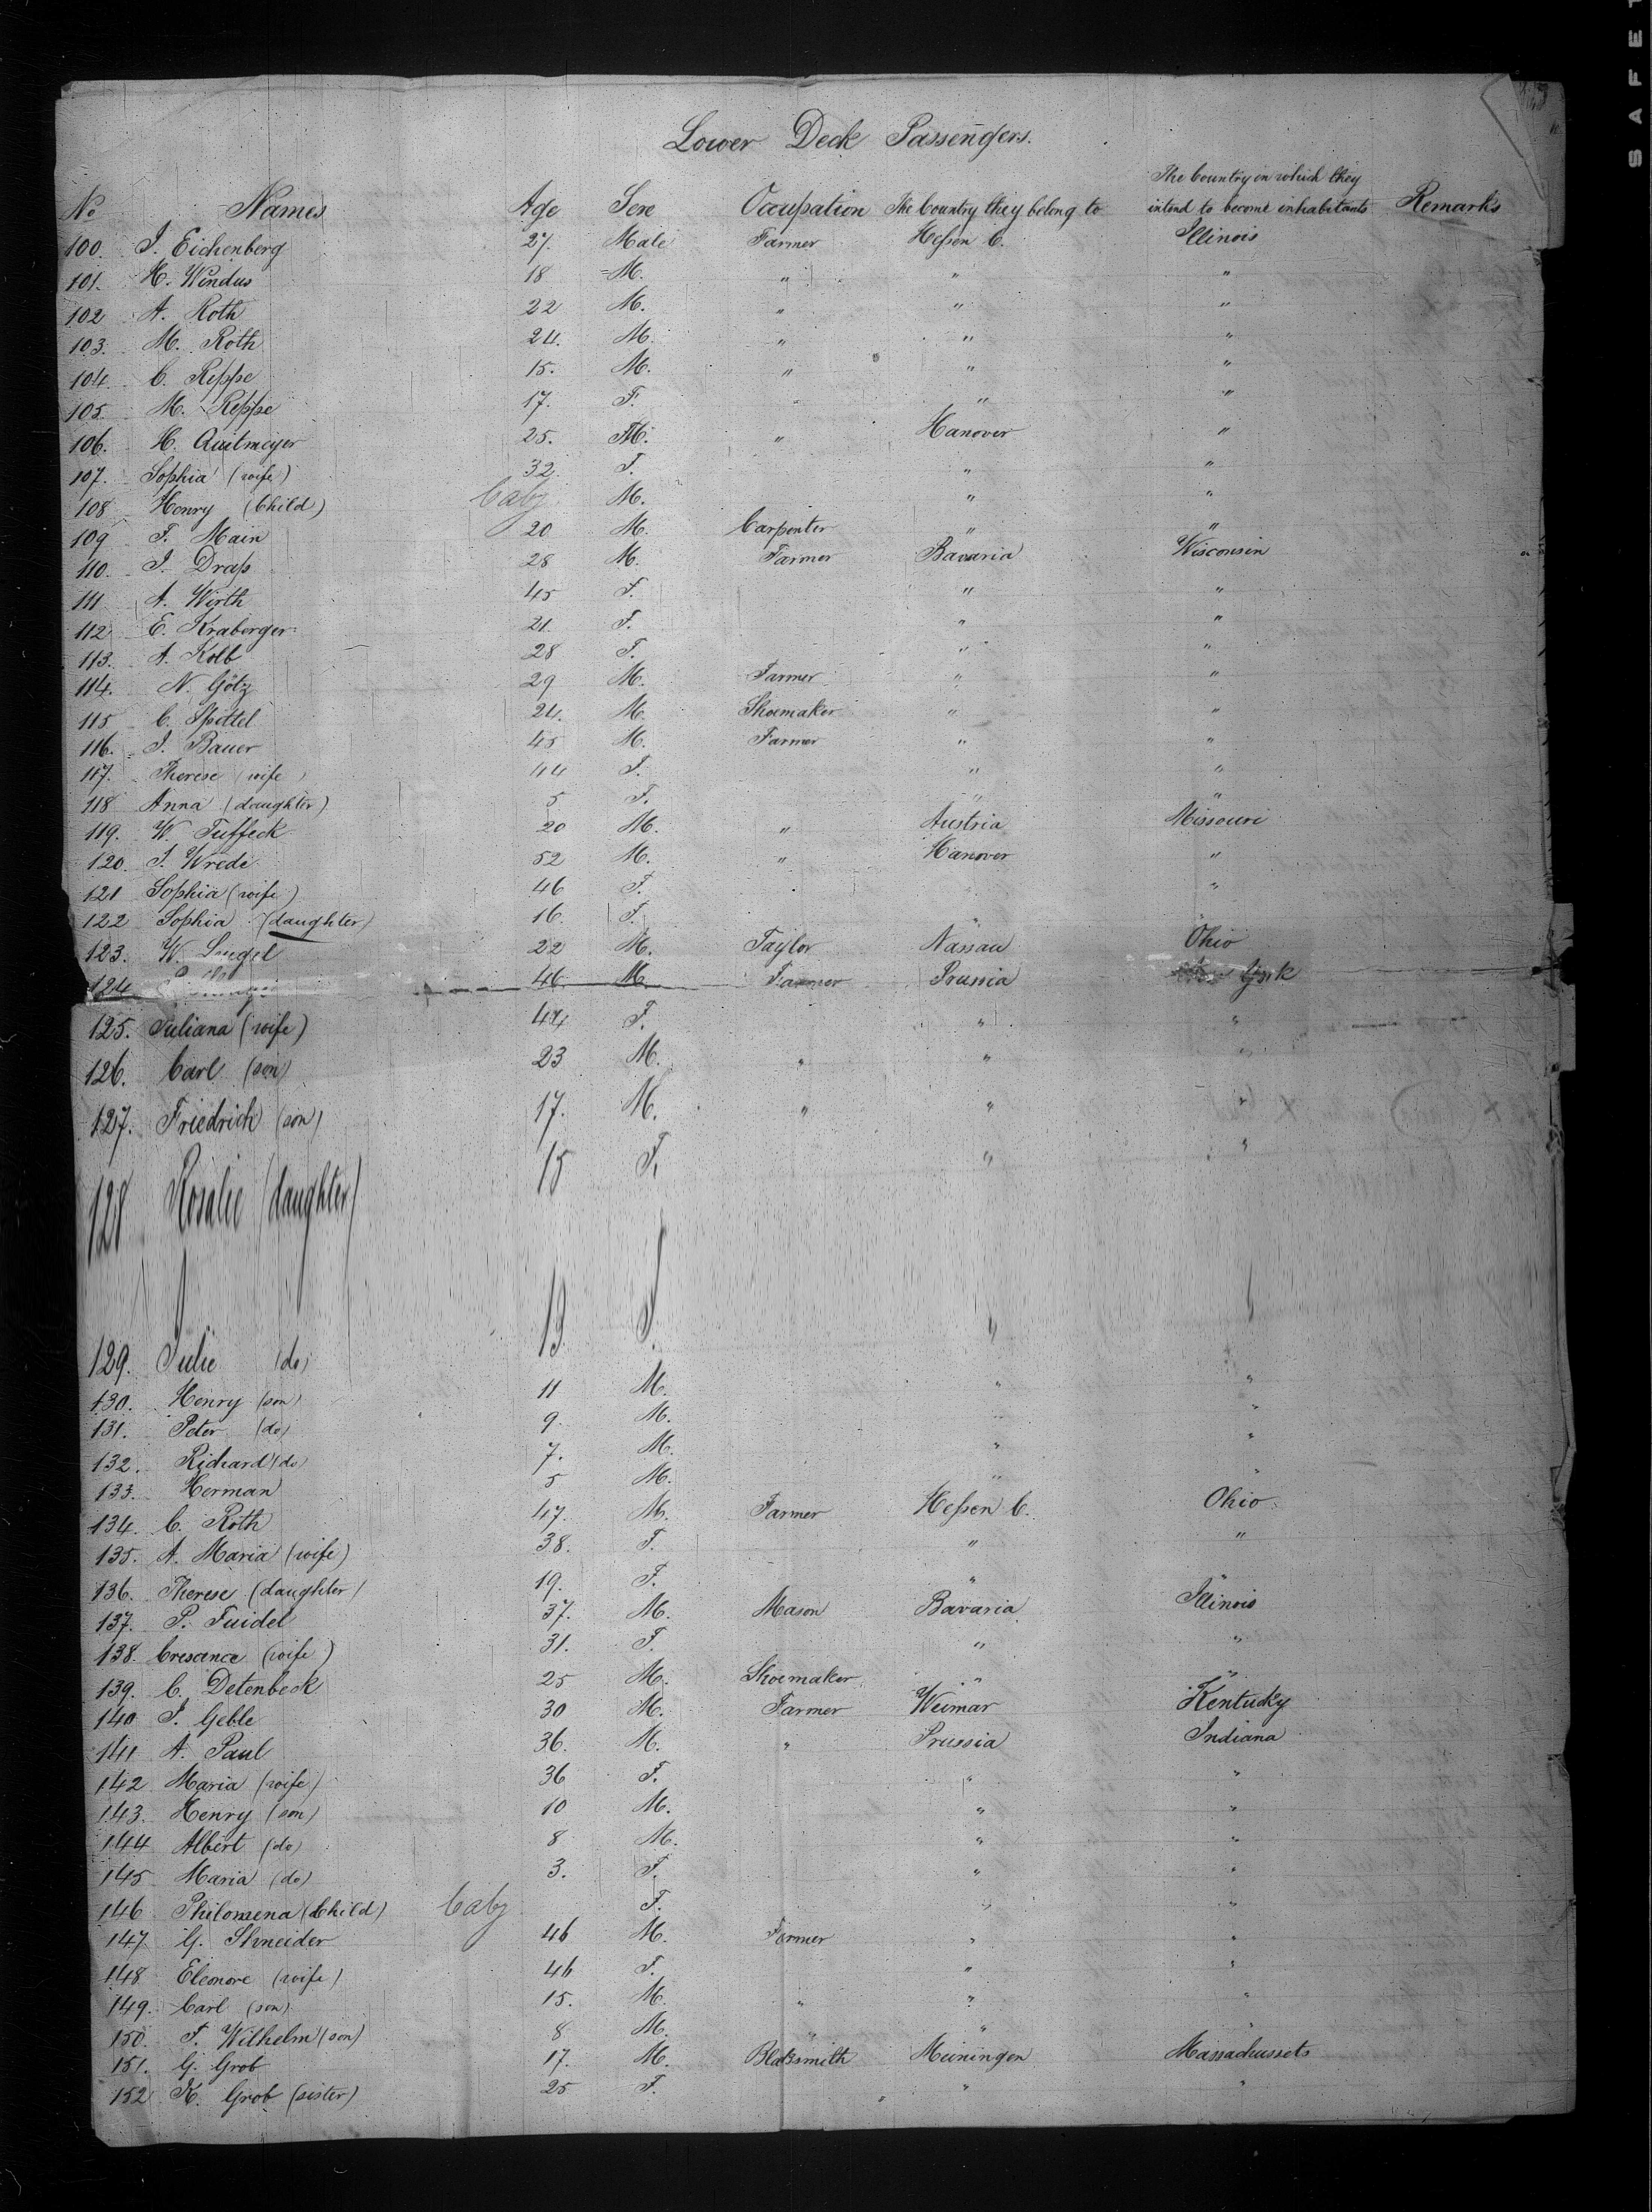 SAFET
Lower Deck Passengers.
No Names Age Sexe Occupation The Country they belong to The Country in which they intend to become inhabitants Remarks
100. J. Eichenberg 27. Male Farmer Hessen C. Illinois
101. H. Windus 18 M. " " "
102 A. Roth 22 M. " " "
103. M. Roth 24. M. " " "
104. C. Reppe 15. M. " " "
105. M. Reppe 17. F. " " "
106. H. Quitmeyer 25. M. " Hanover "
107. Sophia (wife) 32. F. " "
108 Henry (Child) baby M. " "
109 F. Main 20 M. Carpenter " "
110. J. Drass 28 M. Farmer Bavaria Wisconsin
111 A. Wirth 45 F. " "
112 E. Kraberger 21. F. " "
113. A. Kolb 28 F. " "
114. N. Götz 29 M. Farmer " "
115 C. Spittel 24. M. Shoemaker " "
116. J. Bauer 45 M. Farmer " "
117. Therese (wife) 44 F. " "
118 Anna (daughter) 5 F. " "
119. W. Tuffeck 20 M. " Austria Missouri
120. J. Wrede 52 M. " Hanover "
121 Sophia (wife) 46 F. "
122 Sophia (daughter) 16. F. "
123. W. Lengel 22 M. Taylor Nassau Ohio
124 46 M. Farmer Prussia York
125. Juliana (wife) 44 F. " "
126. Carl (son) 23 M. " " "
127. Friedrich (son) 17. M. " " "
128 Rosalie (daughter) 15 F. " "
129. Julie (do) 13. F. " "
130. Henry (son) 11 M. " "
131. Peter (do) 9. M. " "
132. Richard (do) 7. M. " "
133. Herman 5 M. " "
134. C. Roth 47. M. Farmer Hessen C. Ohio
135. A. Maria (wife) 38. F. " "
136. Therese (daughter) 19. F. " "
137. P. Fuidel 37. M. Mason Bavaria Illinois
138. Crescence (wife) 31. F. " "
139. C. Detenbeck 25 M. Shoemaker " "
140 J. Geble 30 M. Farmer Weimar Kentucky
141 A. Paul 36. M. " Prussia Indiana
142 Maria (wife) 36 F. " "
143. Henry (son) 10 M. " "
144 Albert (do) 8 M. " "
145 Maria (do) 3. F. " "
146 Philomena (Child) baby F. " "
147 G. Shneider 46 M. Farmer " "
148 Eleonore (wife) 46 F. " "
149. Carl (son) 15. M. " " "
150. F. Wilhelm (son) 8 M. " " "
151. G. Grob 17. M. Blaksmith Meiningen Massachussets
152 K. Grob (sister) 25 F. " "